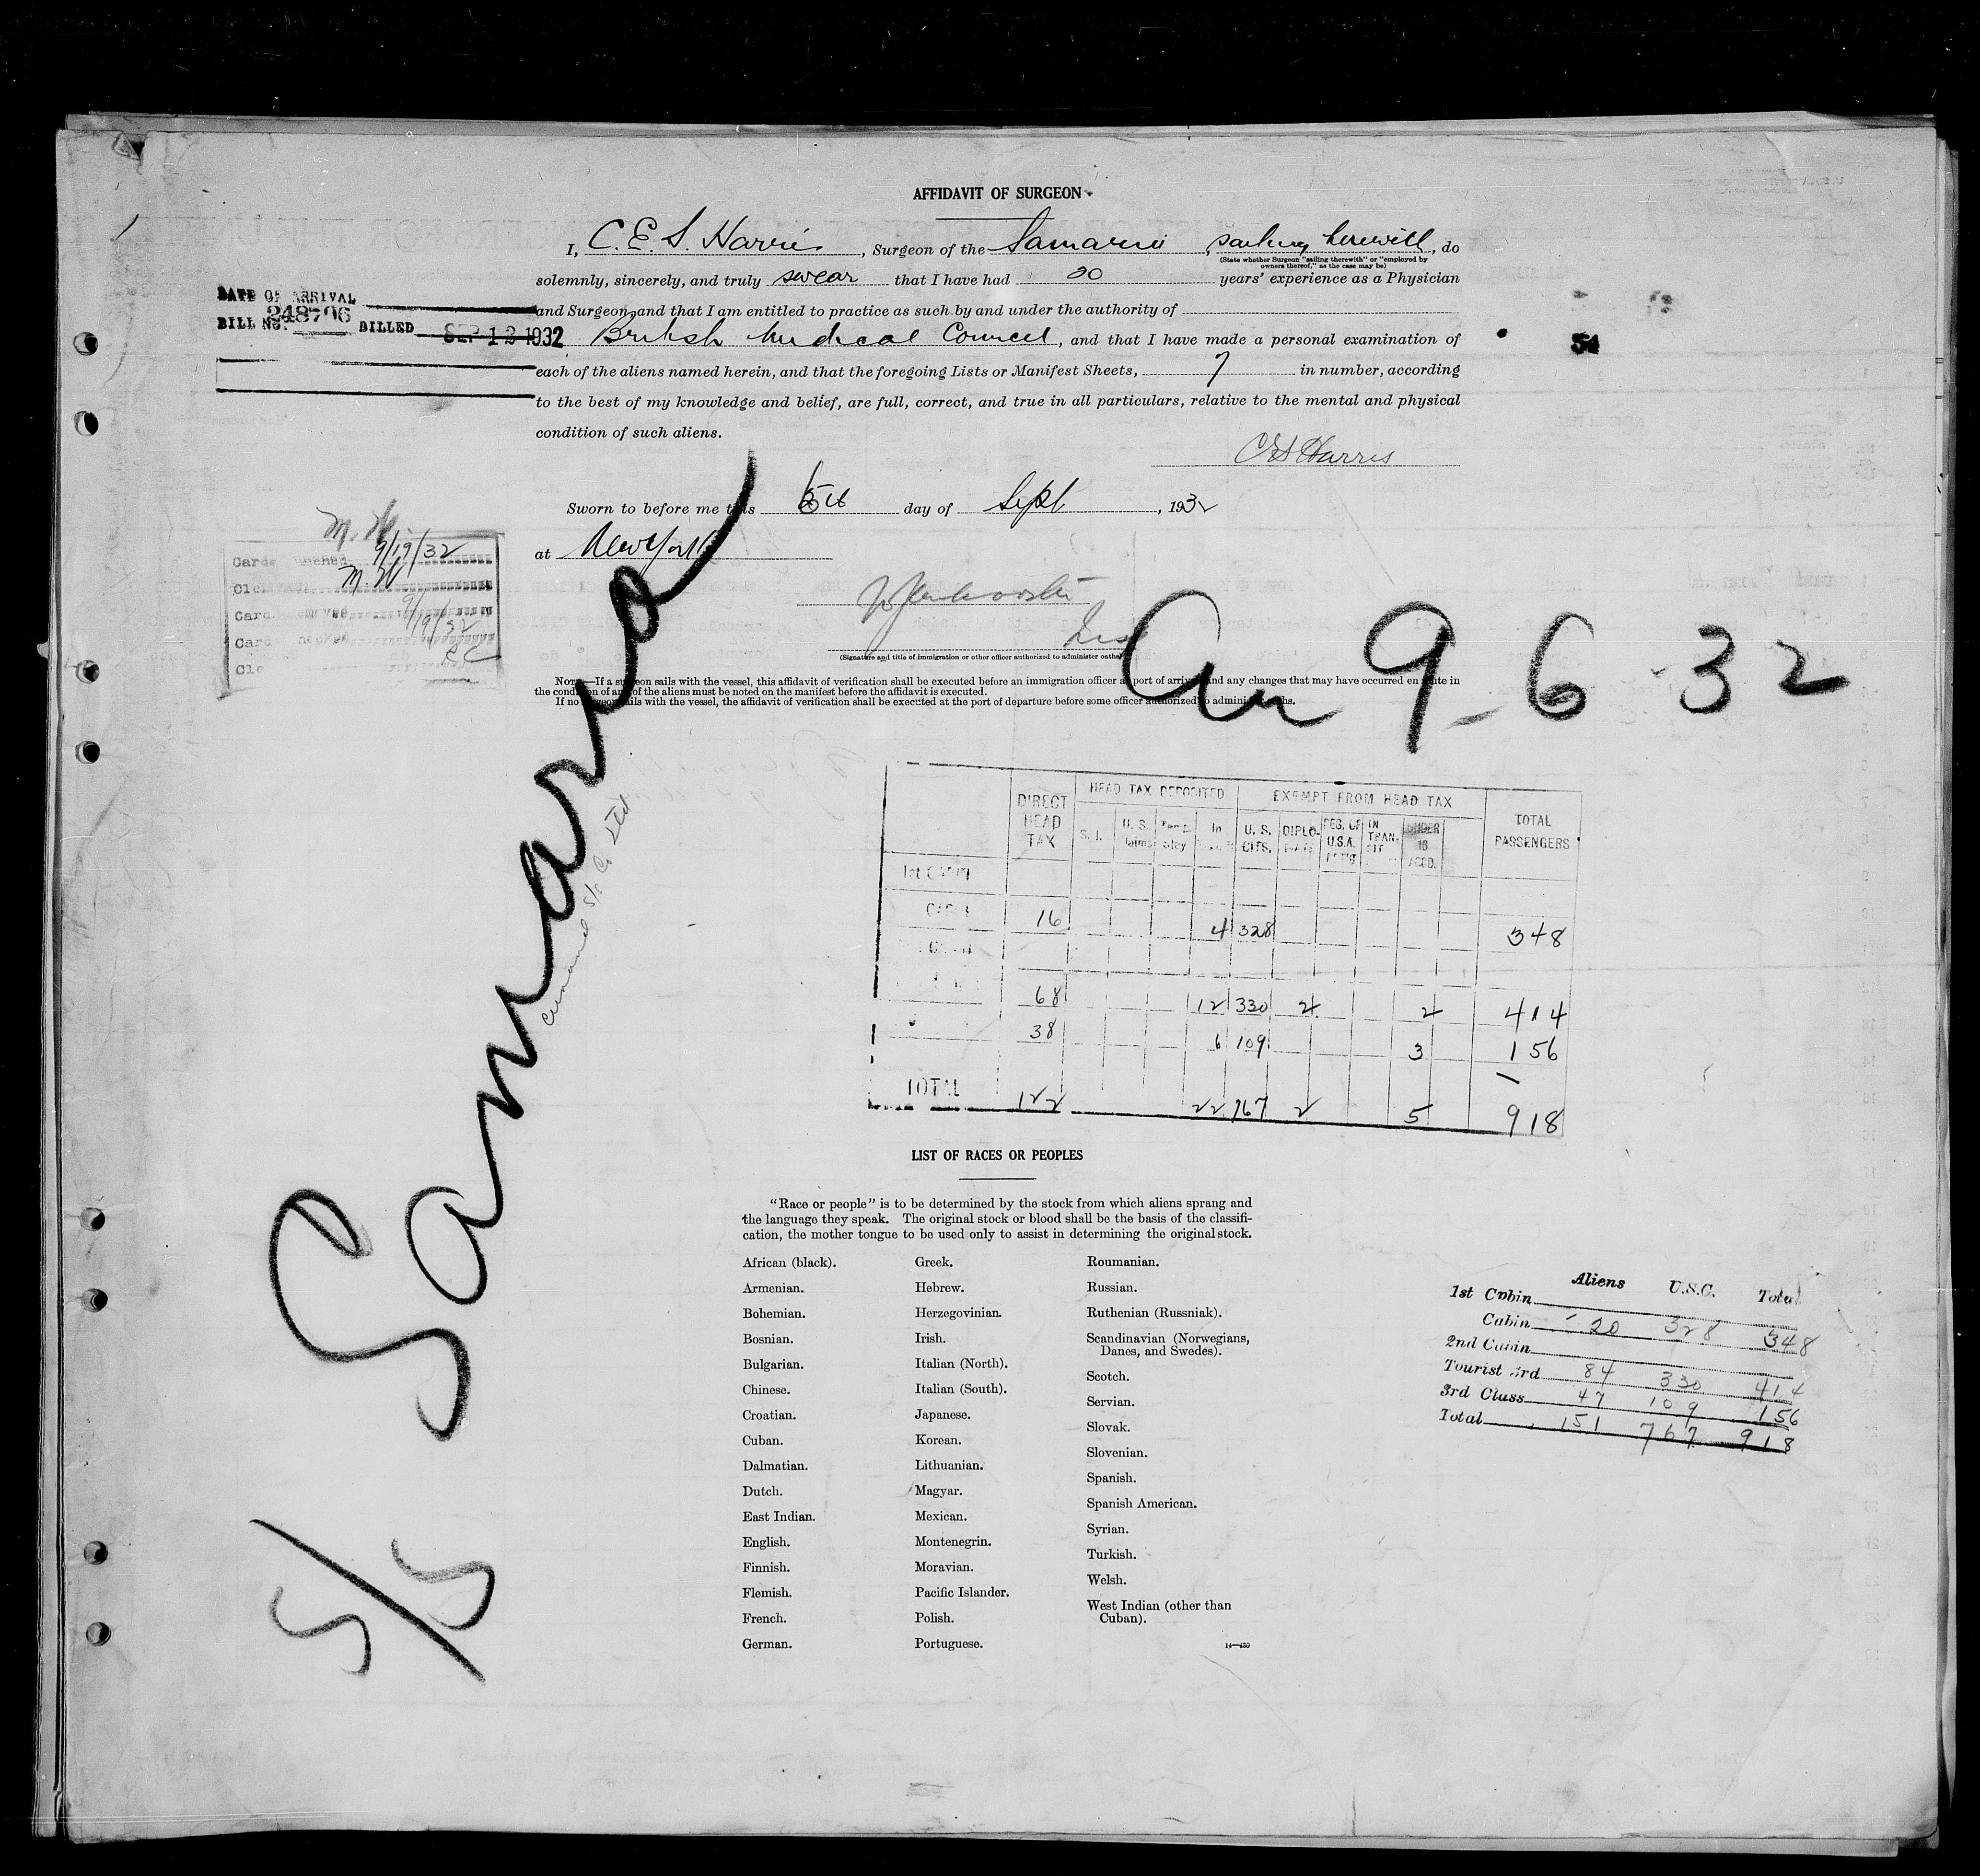 AFFIDAVIT OF SURGEON
I, C. E. S. Harris, Surgeon of the Samaria, sailing herewith, do
(State whether Surgeon "sailing therewith" or "employed by
owners thereof," as the case may be)
solemnly, sincerely, and truly swear that I have had 20 years' experience as a Physician
and Surgeon and that I am entitled to practice as such by and under the authority of
British Medical Council, and that I have made a personal examination of
each of the aliens named herein, and that the foregoing Lists or Manifest Sheets, 7 in number, according
to the best of my knowledge and belief, are full, correct, and true in all particulars, relative to the mental and physical
condition of such aliens.
DATE OF ARRIVAL
248706
BILL No. BILLED SEP 12 1932
54
Harris
Sworn to before me this day of Sept, 1932
at New York
(Signature and title of immigration or other officer authorized to administer oaths)
NOTE.—If a surgeon sails with the vessel, this affidavit of verification shall be executed before an immigration officer at port of arrival and any changes that may have occurred en route in
the condition of any of the aliens must be noted on the manifest before the affidavit is executed.
If no surgeon sails with the vessel, the affidavit of verification shall be executed at the port of departure before some officer authorized to administer oaths.
9/19/32
M. W.
9/19/32
S/S Samaria
9-6-32
DIRECT HEAD TAX
HEAD TAX DEPOSITED
EXEMPT FROM HEAD TAX
TOTAL PASSENGERS
S. I. U. S. Claims Temp. Stay In U. S. CITS. DIPLO- U.S.A. IN TRAN- SIT UNDER 16 ACCD.
1st CABIN
CABIN 16 4 328 348
68 12 330 2 2 414
38 6 109 3 156
TOTAL 122 22 767 2 5 918
LIST OF RACES OR PEOPLES
"Race or people" is to be determined by the stock from which aliens sprang and
the language they speak. The original stock or blood shall be the basis of the classifi-
cation, the mother tongue to be used only to assist in determining the original stock.
African (black).
Armenian.
Bohemian.
Bosnian.
Bulgarian.
Chinese.
Croatian.
Cuban.
Dalmatian.
Dutch.
East Indian.
English.
Finnish.
Flemish.
French.
German.
Greek.
Hebrew.
Herzegovinian.
Irish.
Italian (North).
Italian (South).
Japanese.
Korean.
Lithuanian.
Magyar.
Mexican.
Montenegrin.
Moravian.
Pacific Islander.
Polish.
Portuguese.
Roumanian.
Russian.
Ruthenian (Russniak).
Scandinavian (Norwegians,
Danes, and Swedes).
Scotch.
Servian.
Slovak.
Slovenian.
Spanish.
Spanish American.
Syrian.
Turkish.
Welsh.
West Indian (other than
Cuban).
14—430
Aliens U.S.C. Total
1st Cabin
Cabin 20 328 348
2nd Cabin
Tourist 3rd 84 330 414
3rd Class 47 109 156
Total 151 767 918